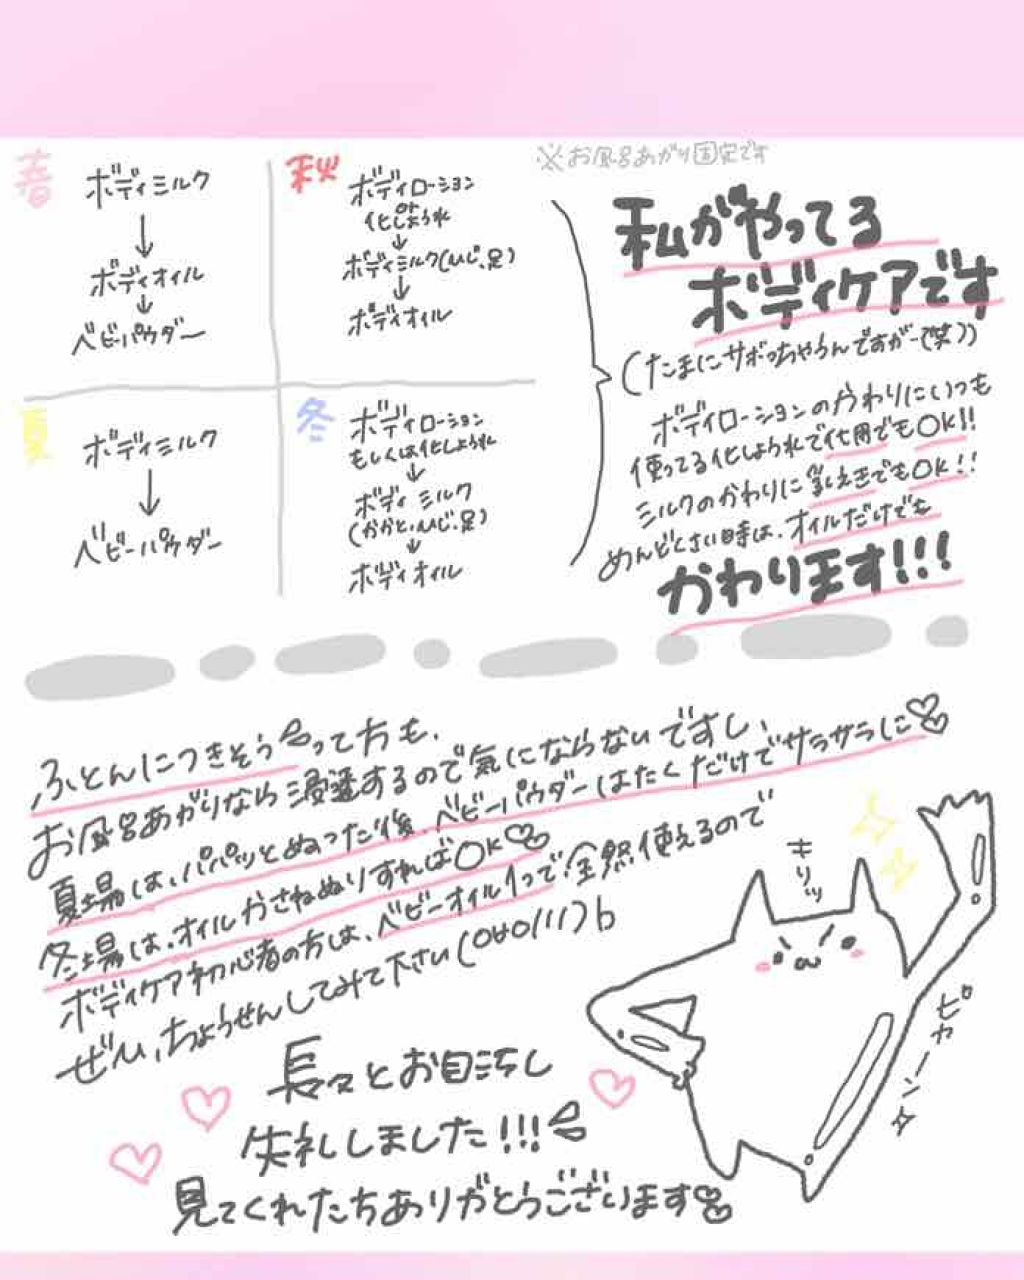 春
ボディミルク
↓
ボディオイル
↓
ベビーパウダー
秋
ボディローション
or
化しょう水
↓
ボディミルク(ひじ、足)
↓
ボディオイル
夏
ボディミルク
↓
ベビーパウダー
冬
ボディローション
もしくは化しょう水
↓
ボディミルク
(かかと・ひじ・足)
↓
ボディオイル
※お風呂あがり固定です
私がやってる
ボディケアです
(たまにサボっちゃうんですがー(笑))
ボディローションのかわりにいつも
使ってる化しょう水で代用でもOK!!
ミルクのかわりに乳えきでもOK!!
めんどくさい時は、オイルだけでも
かわります!!!
ふとんにつきそうって方も、
お風呂あがりなら浸透するので気にならないですし、
夏場は、パパッとぬった後、ベビーパウダーはたくだけでサラサラに
冬場は、オイルかさねぬりすればOK
ボディケア初心者の方は、ベビーオイル1つで全然使えるので
ぜひ、ちょうせんしてみて下さい
長々とお目汚し
失礼しました!!!
見てくれたちありがとうございます
キリッ
ピカーン